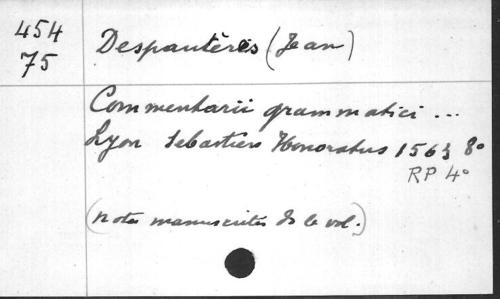 454
75
Despautères (Jean)
Commentarii grammatici ...
Lyon Sebastien Honoratus 1563 8°
RP 4°
(notes manuscrites ds le vol.)